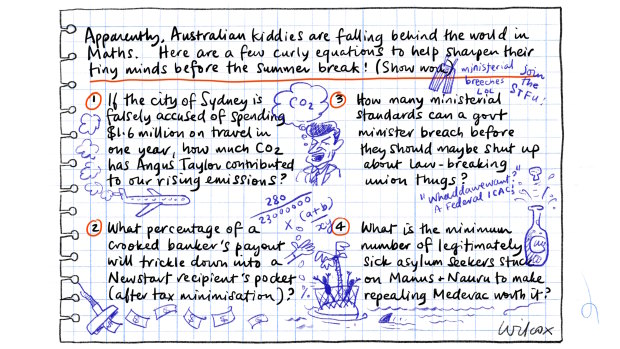 Apparently, Australian kiddies are falling behind the world in
Maths. Here are a few curly equations to help sharpen their
tiny minds before the summer break! (Show
ministerial
breeches
LOL
join
the
STFU!
1 If the city of Sydney is
falsely accused of spending
$1.6 million on travel in
one year, how much CO2
has Angus Taylor contributed
to our rising emissions?
CO2
280
23000000
x (a+b)
xy
2 What percentage of a
crooked banker's payout
will trickle down into a
Newstart recipient's pocket
(after tax minimisation)?
3 How many ministerial
standards can a govt
minister breach before
they should maybe shut up
about law-breaking
union thugs?
"Whaddawewant?"
A Federal ICAC!
4 What is the minimum
number of legitimately
sick asylum seekers stuck
on Manus + Nauru to make
repealing Medevac worth it?
Wilcox